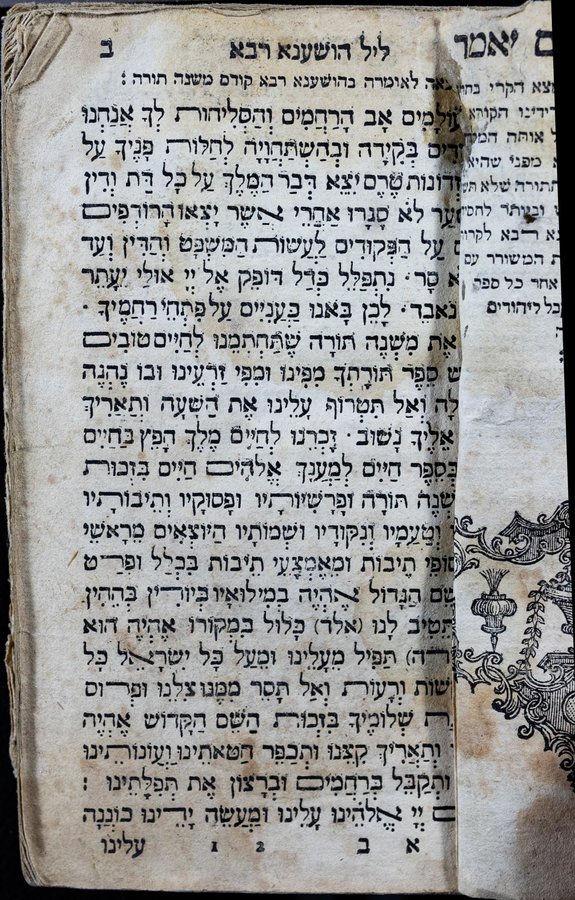 ב ליל הושענא רבא
לאומרה בהושענא רבא קודם משנה תורה :
עוֹלָמִים אָב הָרַחֲמִים וְהַסְּלִיחוֹת לְךָ אֲנַחְנוּ
בְּקִידָה וּבְהִשְׁתַּחֲוָיָה לְחַלּוֹת פָּנֶיךָ עַל
טֶרֶם יֵצֵא דְּבַר הַמֶּלֶךְ עַל כָּל דָּת וְדִין
לֹא סָגָרוּ אַחֲרֵי אֲשֶׁר יָצְאוּ הָרוֹדְפִים
עַל הַפְּקוּדִים לַעֲשׂוֹת הַמִּשְׁפָּט וְהַדִּין וְעַד
סָר ׃ נִתְפַּלֵּל כְּדַל דּוֹפֵק אֶל יְיָ אוּלַי יֵעָתֵר
נֹאבֵד ׃ לָכֵן בָּאנוּ כַּעֲנִיִּים עַל פִּתְחֵי רַחֲמֶיךָ ׃
אֶת מִשְׁנֶה תוֹרָה שֶׁתַּחְתְּמֵנוּ לְחַיִּים טוֹבִים
סֵפֶר תּוֹרָתְךָ מִפִּינוּ וּמִפִּי זַרְעֵינוּ וּבוֹ נֶהְגֶּה
וְאַל תִּטְרוֹף עָלֵינוּ אֶת הַשָּׁעָה וְתַאֲרִיךְ
אֵלֶיךָ נָשׁוּב ׃ זָכְרֵנוּ לְחַיִּים מֶלֶךְ חָפֵץ בַּחַיִּים
בְּסֵפֶר חַיִּים לְמַעַנְךָ אֱלֹהִים חַיִּים בִּזְכוּת
תּוֹרָה וּפָרָשִׁיּוֹתָיו וּפְסוּקָיו וְתֵיבוֹתָיו
וּטְעָמָיו וְנִקּוּדָיו וּשְׁמוֹתָיו הַיּוֹצְאִים מֵרָאשֵׁי
סוֹפֵי תֵיבוֹת וּמֵאֶמְצָעֵי תֵיבוֹת בִּכְלָל וּפְרָט
שֵׁם הַגָּדוֹל אֶהְיֶה בְּמִילוּאָיו בְּיוּדִין בְּהֵהִין
תֵּטִיב לָנוּ (אלד) כָּלוּל בִּמְקוֹרוֹ אֶהְיֶה הוּא
תַּפִּיל מֵעָלֵינוּ וּמֵעַל כָּל יִשְׂרָאֵל כָּל
וְרָעוֹת וְאַל תָּסֵר מִמֶּנּוּ צִלֵּנוּ וּפְרוֹס
שְׁלוֹמֶיךָ בִּזְכוּת הַשֵּׁם הַקָּדוֹשׁ אֶהְיֶה
וְתַאֲרִיךְ קִצֵּנוּ וּתְכַפֵּר חַטֹּאתֵינוּ וַעֲוֹנוֹתֵינוּ
וּתְקַבֵּל בְּרַחֲמִים וּבְרָצוֹן אֶת תְּפִלָּתֵינוּ :
יְיָ אֱלֹהֵינוּ עָלֵינוּ וּמַעֲשֵׂה יָדֵינוּ כּוֹנְנָה
א ב 1 2 עלינו
יאמר
הקרי
הקורא
אותה
מפני שהיא
התורה שלא
רבא לקרות
המשורר עם
אחר כל ספר
ליהודים